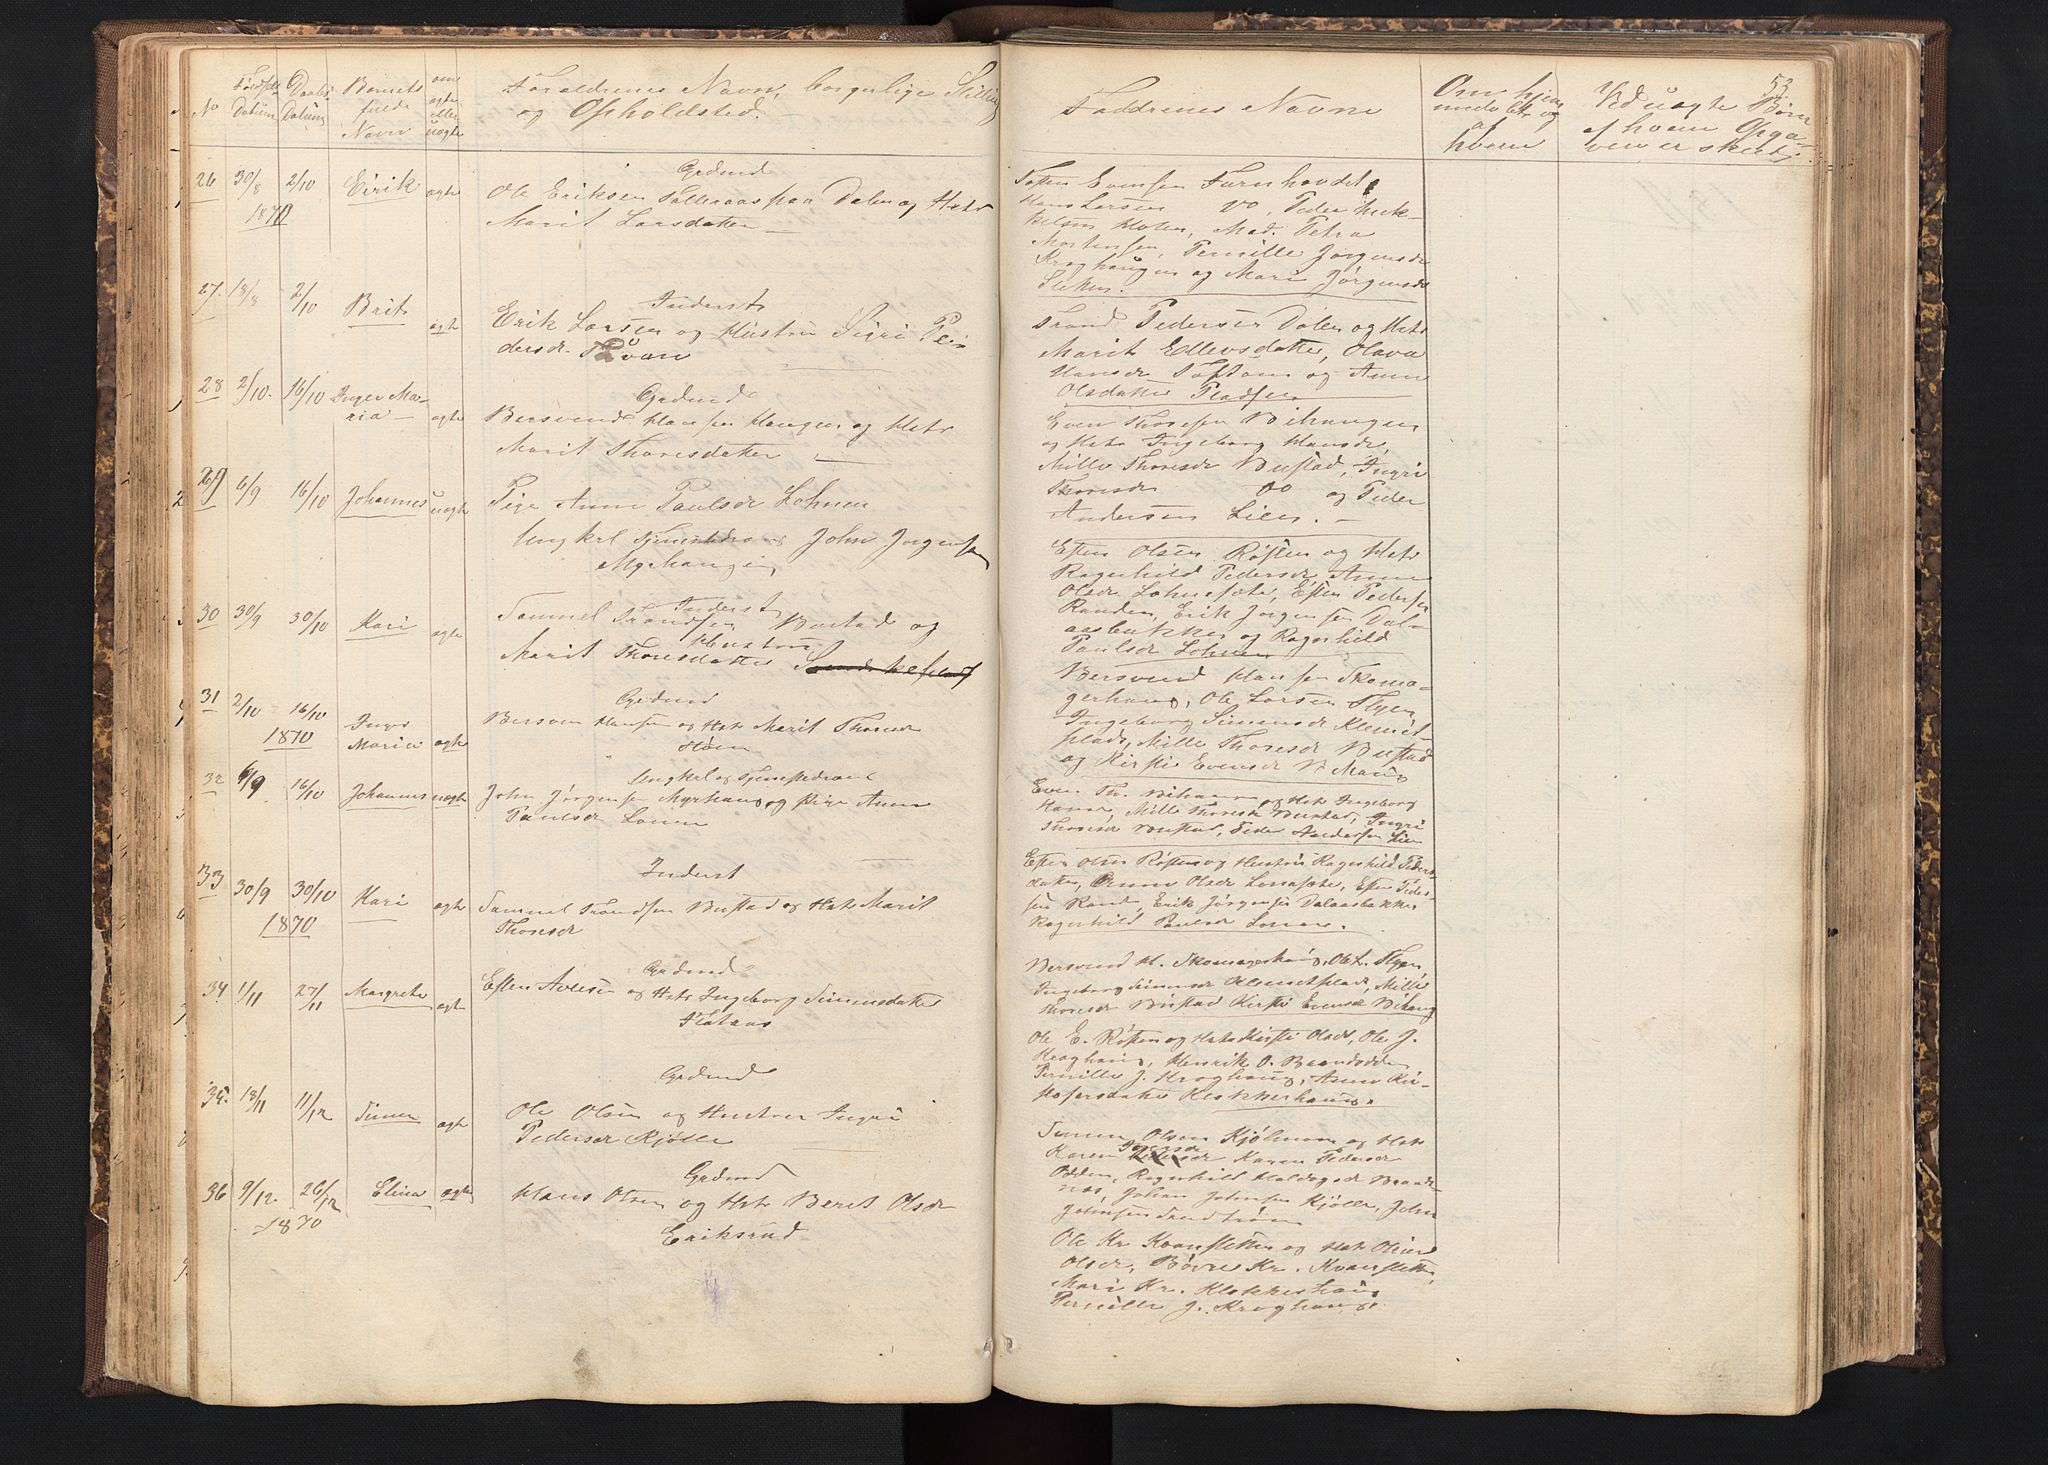 53.
No
Fødsels Datum
Daabs Datum
Barnets fulde Navn
om ægte eller uægte
Forældrenes Navn, borgerlige Stilling
og Opholdsted.
Faddrenes Navne
Om hjemmedøbt og
af hvem
Ved uægte Børn
af hvem Opgaven er skeet
26 30/8 2/10 Eirik ægte
1870
Grdmd
Ole Eriksen paa Dalen og Hstr
Marit Larsdatter
Even
Hans Larsen Do, Peder
Holen, Mad. Petra
Mortensen, Pernille Jørgensdr
Kroghaugen og Mari Jørgensdr
27. 18/8 2/10 Brit ægte
Inderst
Erik Larsen og Hustru Siri Pe-
dersdr.
Trond Pedersen Dalen og Hstr
Marit Ellevsdatter, Olava
Hansdr Toftom og Anne
Olsdatter Pladsen
28 2/10. 16/10 Inger Ma-
ria ægte
Grdmd
Bersvend Hansen Haugen og Hstr
Marit Thoresdatter
Even Thoresen Bihaugen
og Hstr Ingeborg Hansdr,
Mille Thoresdr Bustad, Ingri
Thoresdr Do og Peder
Andersen Lien.
29 6/9 16/10 Johannes uægte
Pige Anne Paulsdr Lohnen
Ungkrl John Jørgensen
Myrhaugen
Esten Olsen Røsten og Hstr
Ragnhild Pedersdr, Anne
Olsdr Lohnesæte, Esten Pedersen
Randen, Erik Jørgensen Dal-
aasbakken og Ragnhild
Paulsdr Lohnen
30 30/9 30/10 Kari ægte
Inderst
Samuel Trondsen Bustad og
Hustru
Marit Thoresdatter
Bersvend Hansen Skoma-
gerhaug, Ole Larsen Flyen
Ingeborg Simensdr Klemets-
plads, Mille Thoresdr Bustad
og Kirsti Evensdr
31 2/10 16/10 Inger
1870 Maria ægte
Grdmd
Bersven Hansen og Hstr Marit Thoresdr
Even Th. Bihaugen og Hstr Ingeborg
Hansdr, Mille Thoresdr Bustad, Ingri
Thoresdr Bustad, Peder Andersen Lien
32 6/9 16/10 Johannes uægte
Ungkrl og Tjenestedreng
John Jørgensen Myrhaug og Pige Anne
Paulsdr Lonen
Esten Olsen Røsten og Hustru Ragnhild Peders-
datter, Anne Olsdr Lonesæte, Esten Peder-
sen Rand, Erik Jørgensen Dalaasbakken
Ragnhild Paulsdr Lonen.
33 30/9 30/10 Kari ægte
1870
Inderst
Samuel Trondsen Bustad og Hstr Marit
Thoresdr
Bersvend H. Skomagerhaug, Ole L. Flyen
Ingeborg Simensdr Klemetsplads, Mille
Thoresdr Bustad Kirsti Evensdr Bihaug
34 1/11 27/11 Margrete ægte
Grdmd
Esten Avesen og Hstr Ingeborg Simensdatter
Flataas
Ole E. Røsten og Hstr Kirsti Olsdr, Ole J.
Kroghaug, Henrik O. Brandodden
Pernille J. Kroghaug, Anne Kri-
stofersdatter Klokkerhaug.
35. 18/11 11/12 Simen ægte
Grdmd
Ole Olsen og Hustrue Ingri
Pedersdr Kjølle
Simen Olsen Kjølmoen og Hstr
Karen Karen Pedersdr
Odden, Ragnhild
Johan Johnsen Kjølle, John
Johnsen
36 9/12. 26/12 Elina ægte
1870
Grdmd
Hans Olsen og Hstr Beret Olsdr
Eriksrud
Ole Kr Kvansletten og Hstr
Olsdr, Kr. Kvansletten,
Mari Kr. Klokkerhaug
Pernille J. Kroghaug.